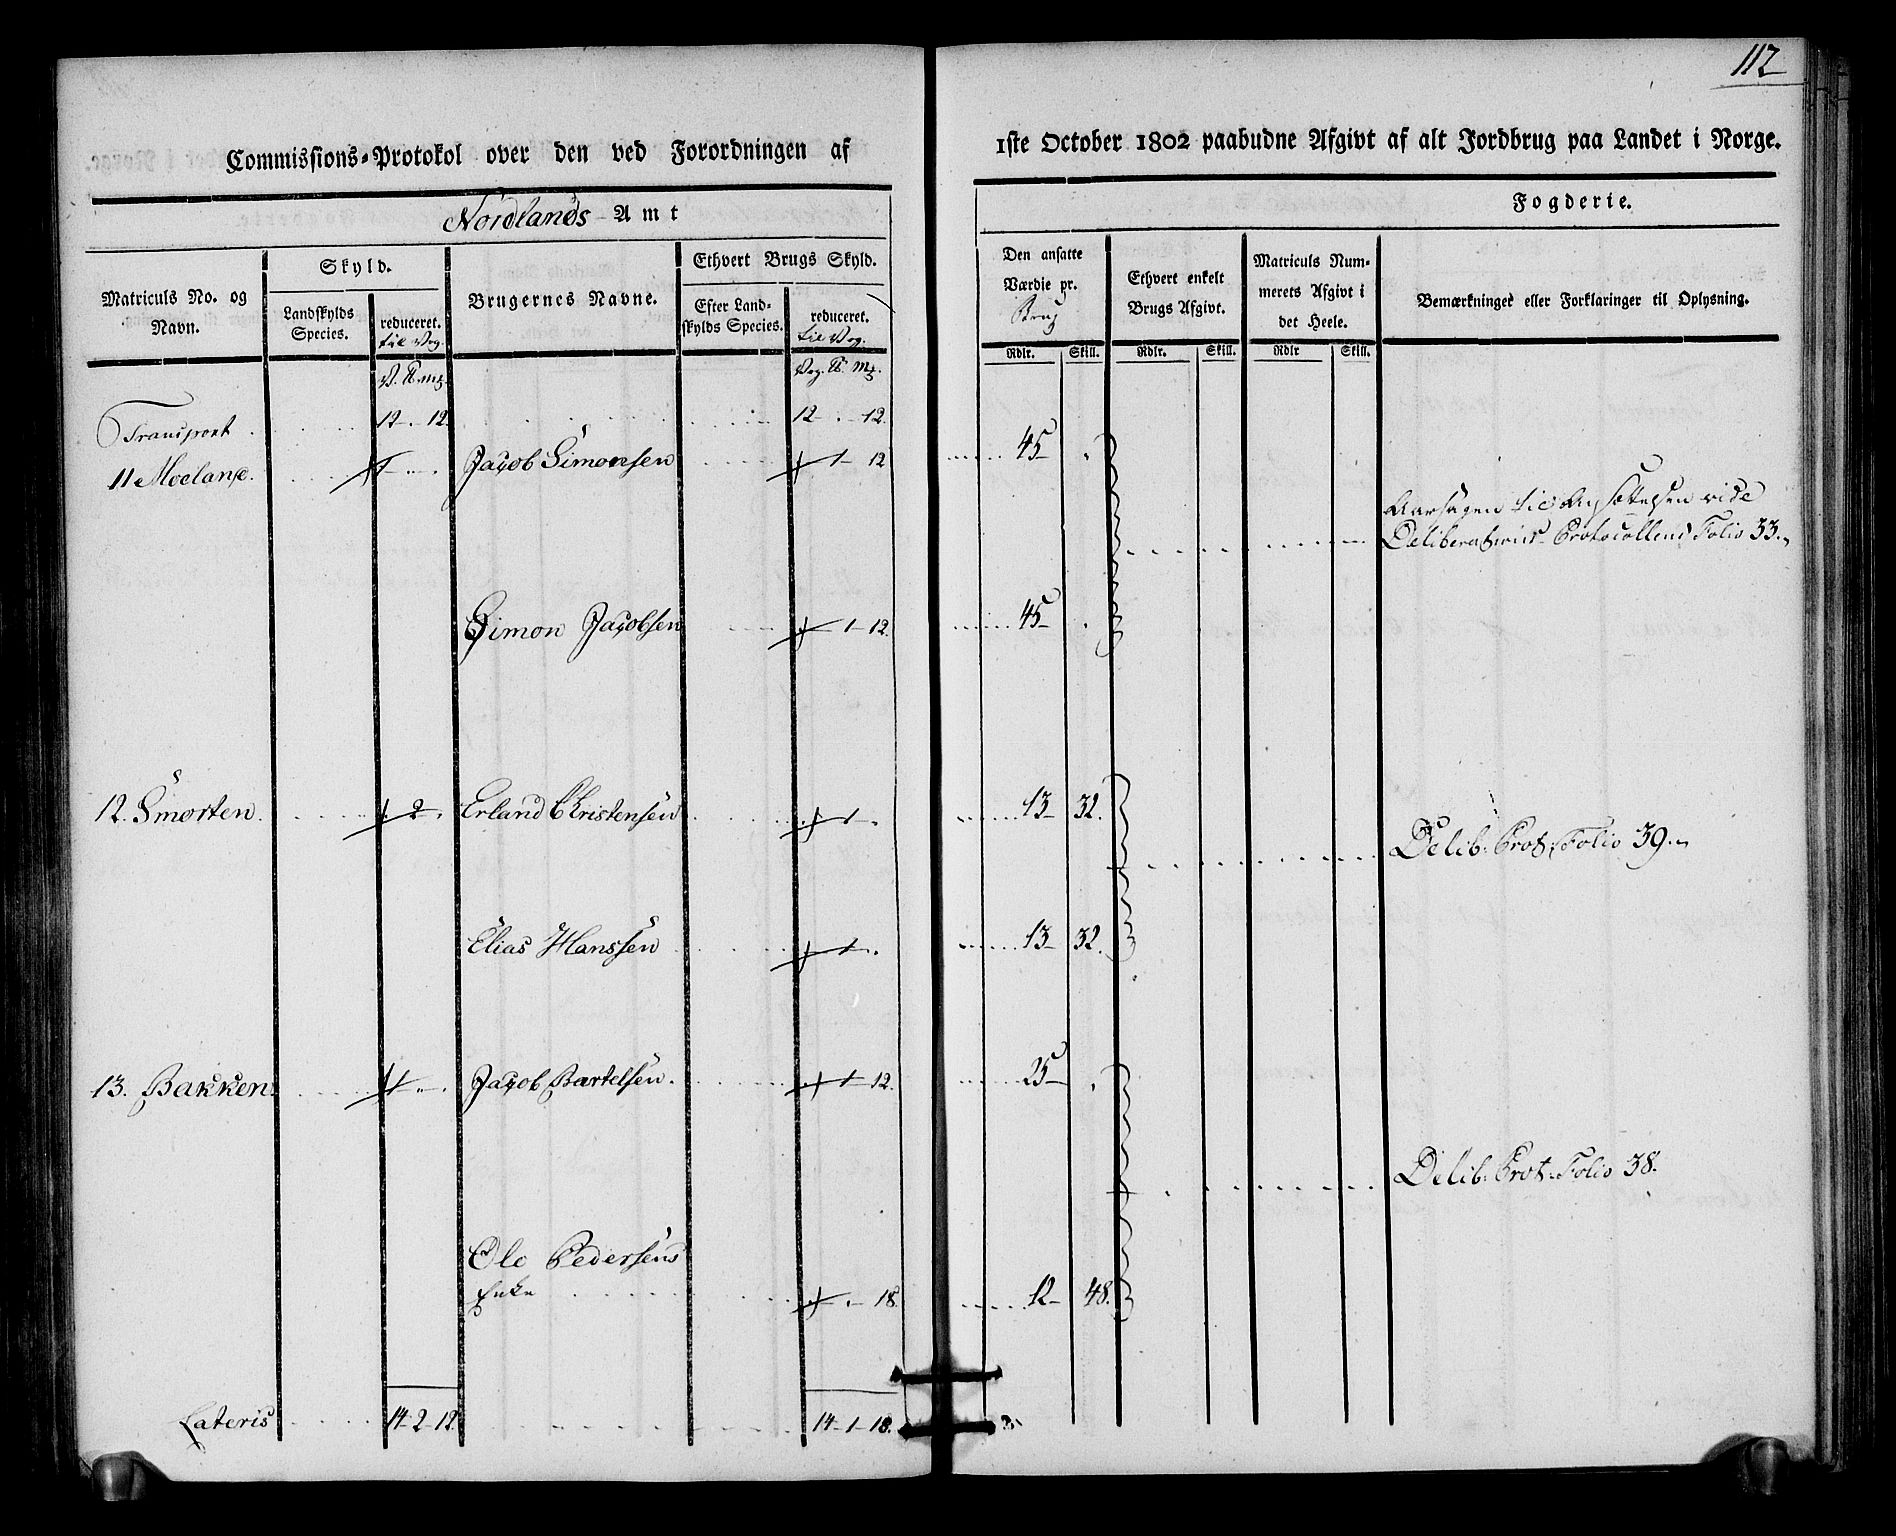 112
Commissions-Protokol over den ved Forordningen af 1ste October 1802 paabudne Afgivt af alt Jordbrug paa Landet i Norge.
Nordlands Amt Fogderie.
Matriculs No. og Navn.
Skyld.
Landskylds Species.
reduceret. til Vog.
Brugernes Navne.
Ethvert Brugs Skyld.
Efter Landskylds Species.
reduceret. til Vog.
Den ansatte Værdie pr. Brug
Ethvert enkelt Brugs Afgivt.
Matriculs Nummerets Afgivt i det Heele.
Bemærkninger eller Forklaringer til Oplysning.
Rdlr. Skill. Rdlr. Skill. Rdlr Skill.
Transport 12 - . - 12 12 - . - 12.
11 Moelang. 1 Jacob Simonsen 1 - 12 45 - .
Aarsagen til Ansættelsen vide
Deliberations-Protocollens Folio 33.
Simon Jacobsen 1 - 12. 45 - .
12. Smorten. 2 . Erland Christensen 1 - . 13 - 32.
Delib: Prot: Folio 39.
Elias Hanssen 1 - . 13 - 32.
13. Bakken. 1 Jacob Bartelsen. 1 - 12. 25 - .
Delib: Prot: Folio 38.
Ole Pedersens
Enke . - 18. 12 - 48.
Lateris 14 - 2 - 12. 14 - 1 - 18.